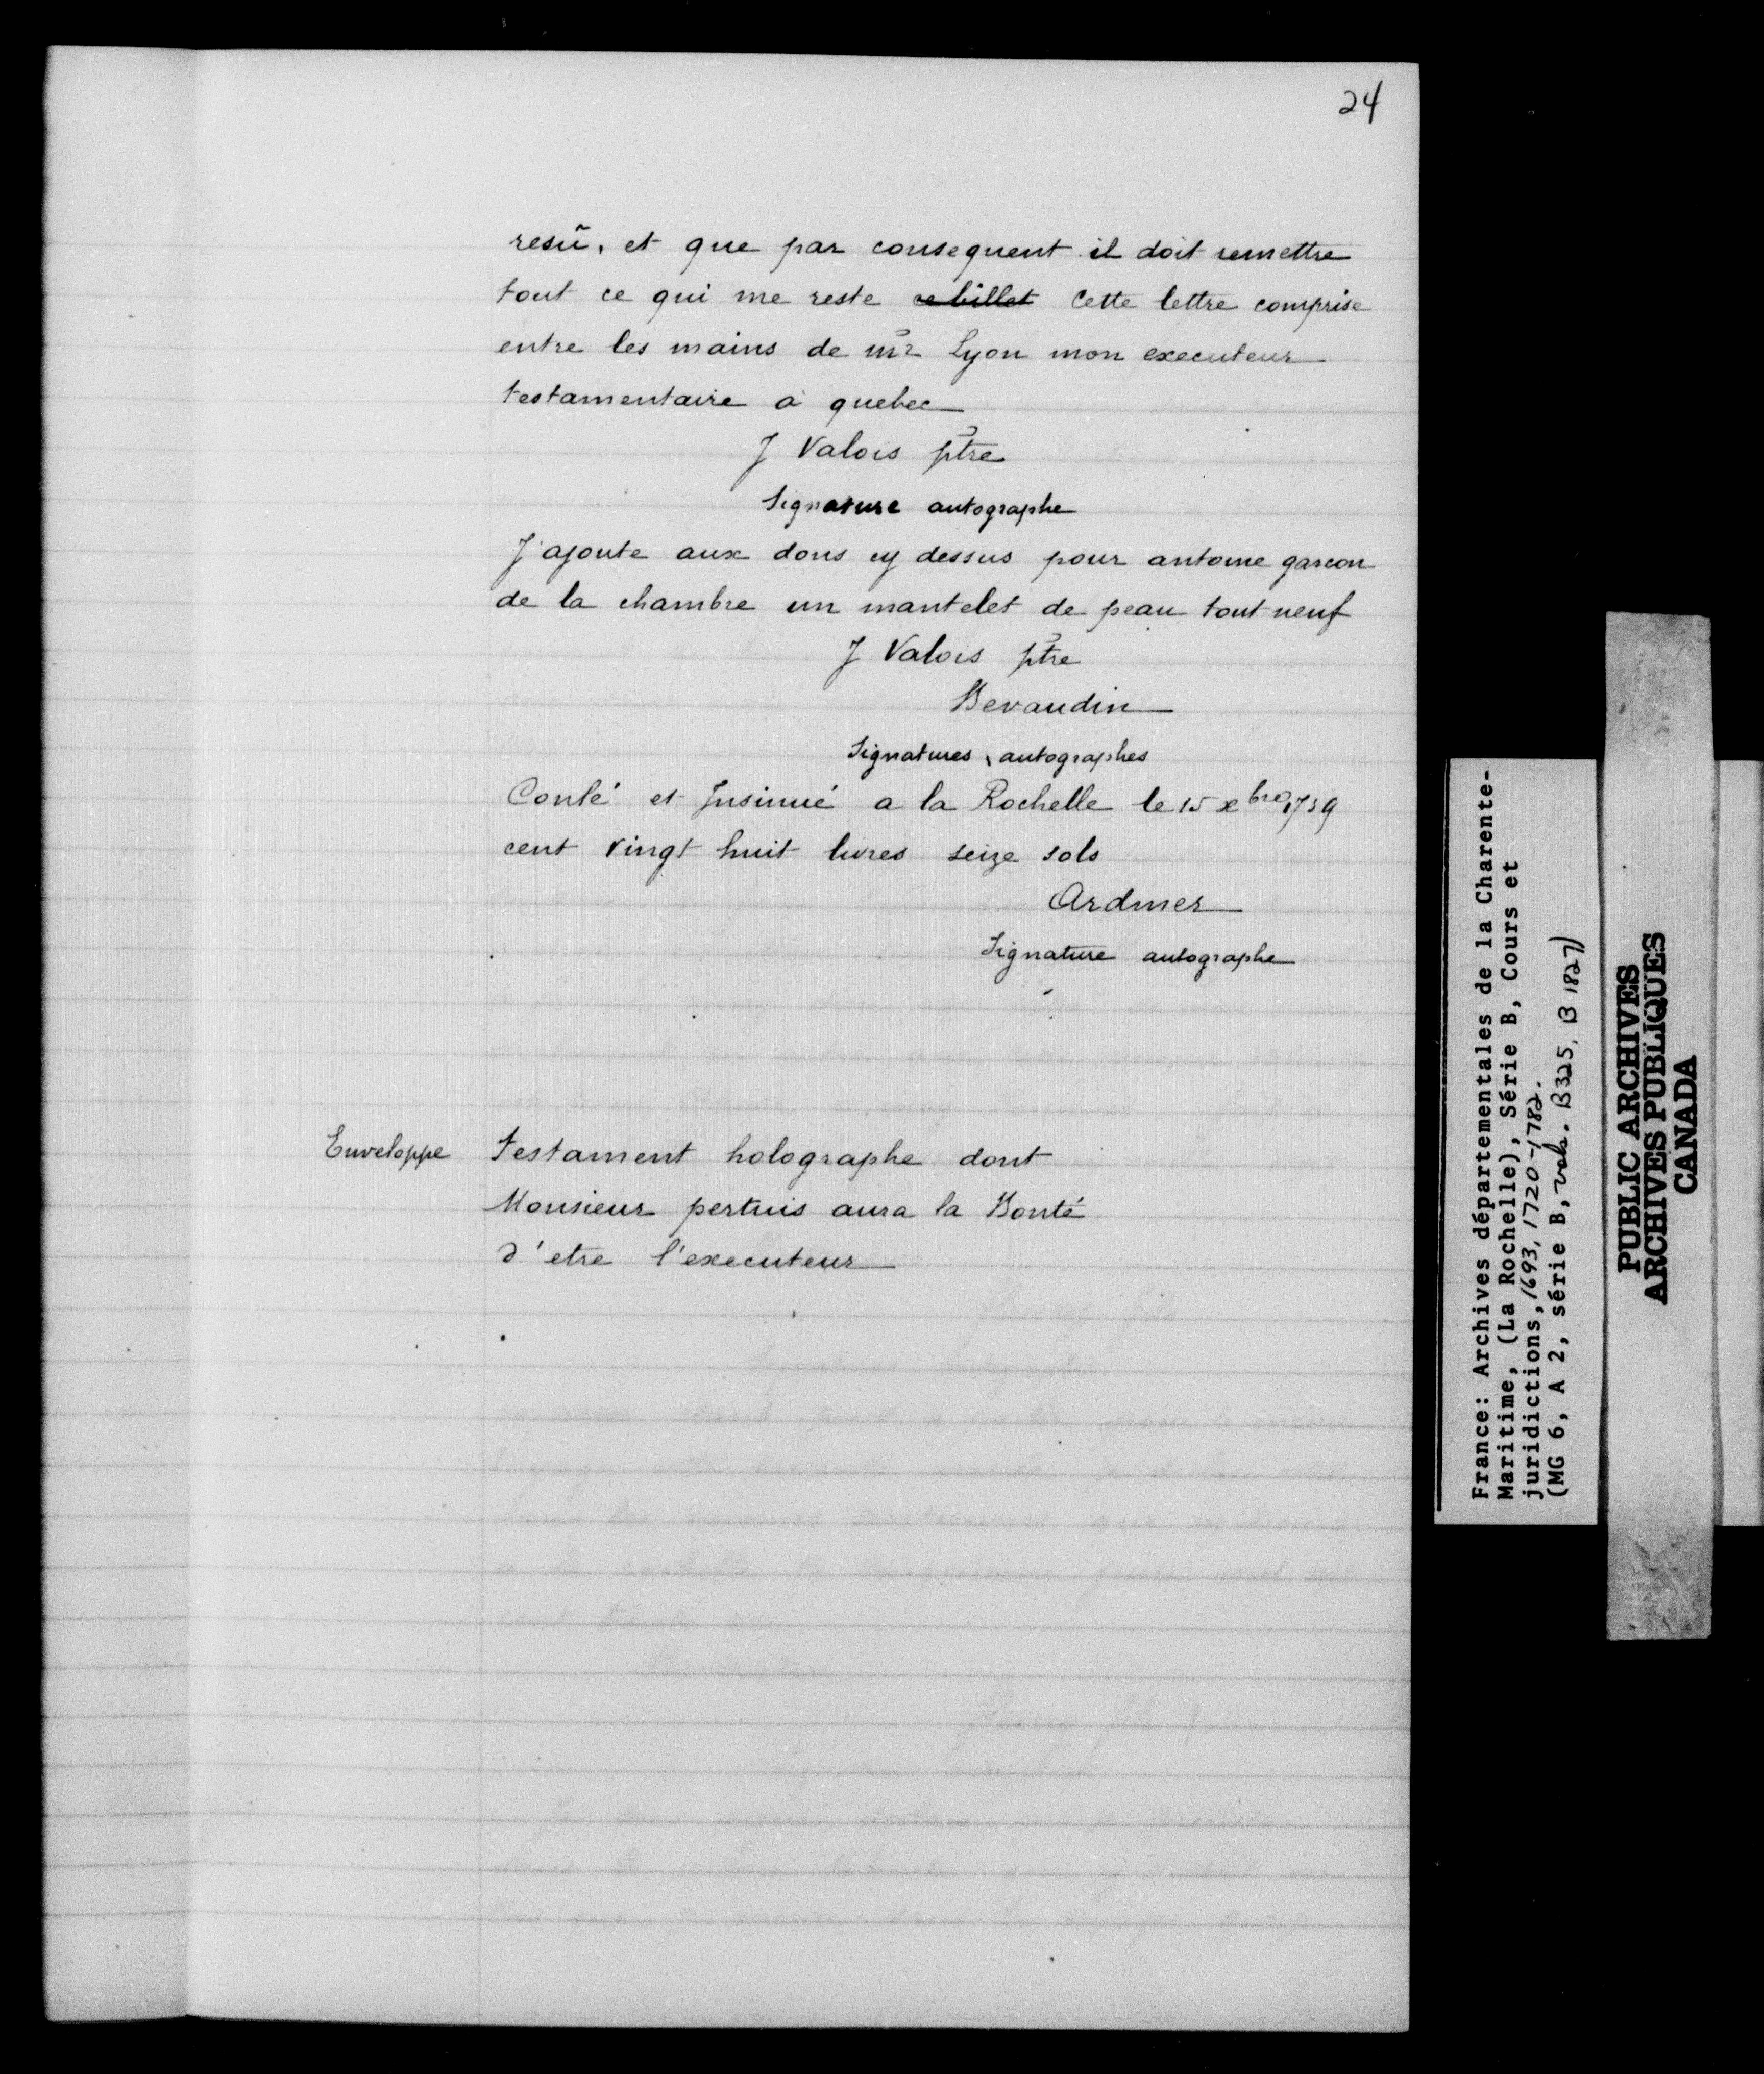 24
resu, et que par consequent il doit remettre
tout ce qui me reste ce billet Cette lettre comprise
entre les mains de mr Lyon mon executeur
testamentaire a quebec
J Valois ptre
Signature autographe
J'ajoute aux dons cy dessus pour antoine garcon
de la chambre un mantelet de peau tout neuf
J Valois ptre
Bevaudin
Signatures autographes
Conlé et Insinué a la Rochelle le 15 xbre 1739
cent vingt huit livres seize sols
Ardmer
Signature autographe
Enveloppe
testament holographe dont
Monsieur pertuis aura la Bonté
d'etre l'executeur
France: Archives départementales de la Charente-
Maritime, (La Rochelle), Série B, Cours et
juridictions, 1693, 1720-1782.
(MG 6, A 2, série B, vols. B325, B 1827)
PUBLIC ARCHIVES
ARCHIVES PUBLIQUES
CANADA